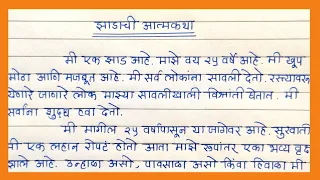 झाडाची आत्मकथा
मी एक झाड आहे. माझे वय २५ वर्षे आहे. मी खूप
मोठा आणि मजबूत आहे. मी सर्व लोकांना सावली देतो. रस्त्यावरून
येणारे जाणारे लोक माझ्या सावलीखाली विश्रांती घेतात. मी
सर्वांना शुद्ध हवा देतो.
मी मागील २५ वर्षांपासून या जागेवर आहे. सुरुवातीला
मी एक लहान रोपटं होतो आता माझे रूपांतर एका भव्य वृक्षात
झाले आहे. उन्हाळा असो, पावसाळा असो किंवा हिवाळा मी